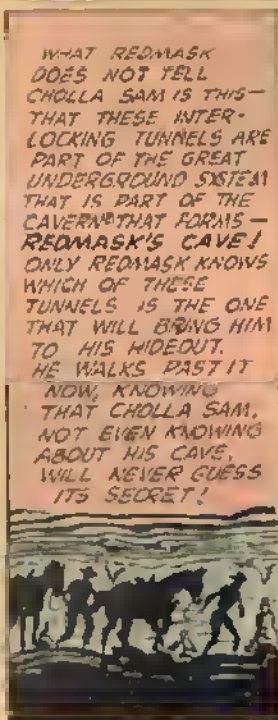 WHAT REDMASK
DOES NOT TELL
CHOLLA SAM IS THIS—
THAT THESE INTER-
LOCKING TUNNELS ARE
PART OF THE GREAT
UNDERGROUND SYSTEM
THAT IS PART OF THE
CAVERN THAT FORMS—
REDMASK'S CAVE!
ONLY REDMASK KNOWS
WHICH OF THESE
TUNNELS IS THE ONE
THAT WILL BRING HIM
TO HIS HIDEOUT.
HE WALKS PAST IT
NOW, KNOWING
THAT CHOLLA SAM,
NOT EVEN KNOWING
ABOUT HIS CAVE,
WILL NEVER GUESS
ITS SECRET!